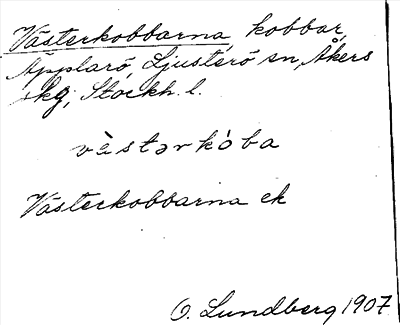 Västerkobbarna, kobbar,
Äpplarö, Ljusterö sn, Åkers
skg, Stockh. l.
vèstərkòba
Västerkobbarna ek
O. Lundberg 1907